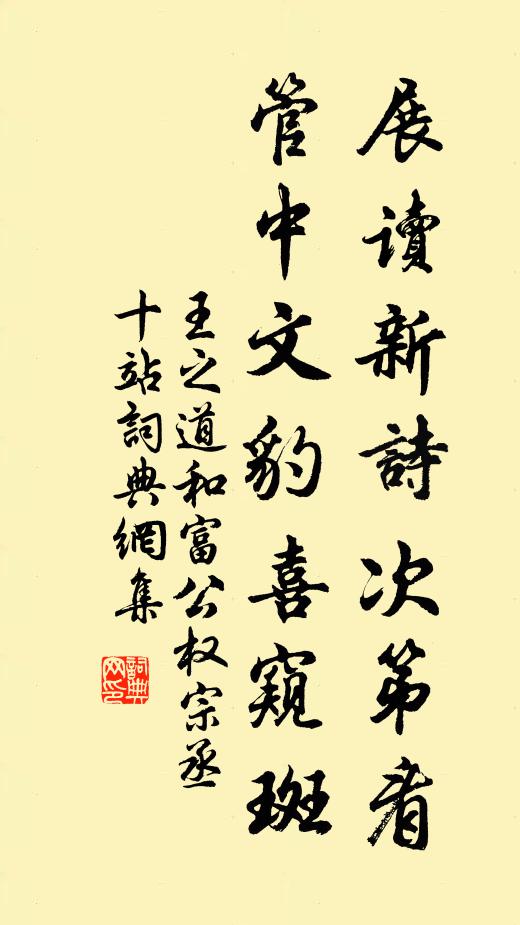 展讀新詩次第看
管中文豹喜窺斑
王之道和富公权宗丞
十站詞典網集
詞典网印